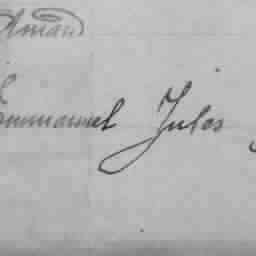 Amand
Emmanuel Jules